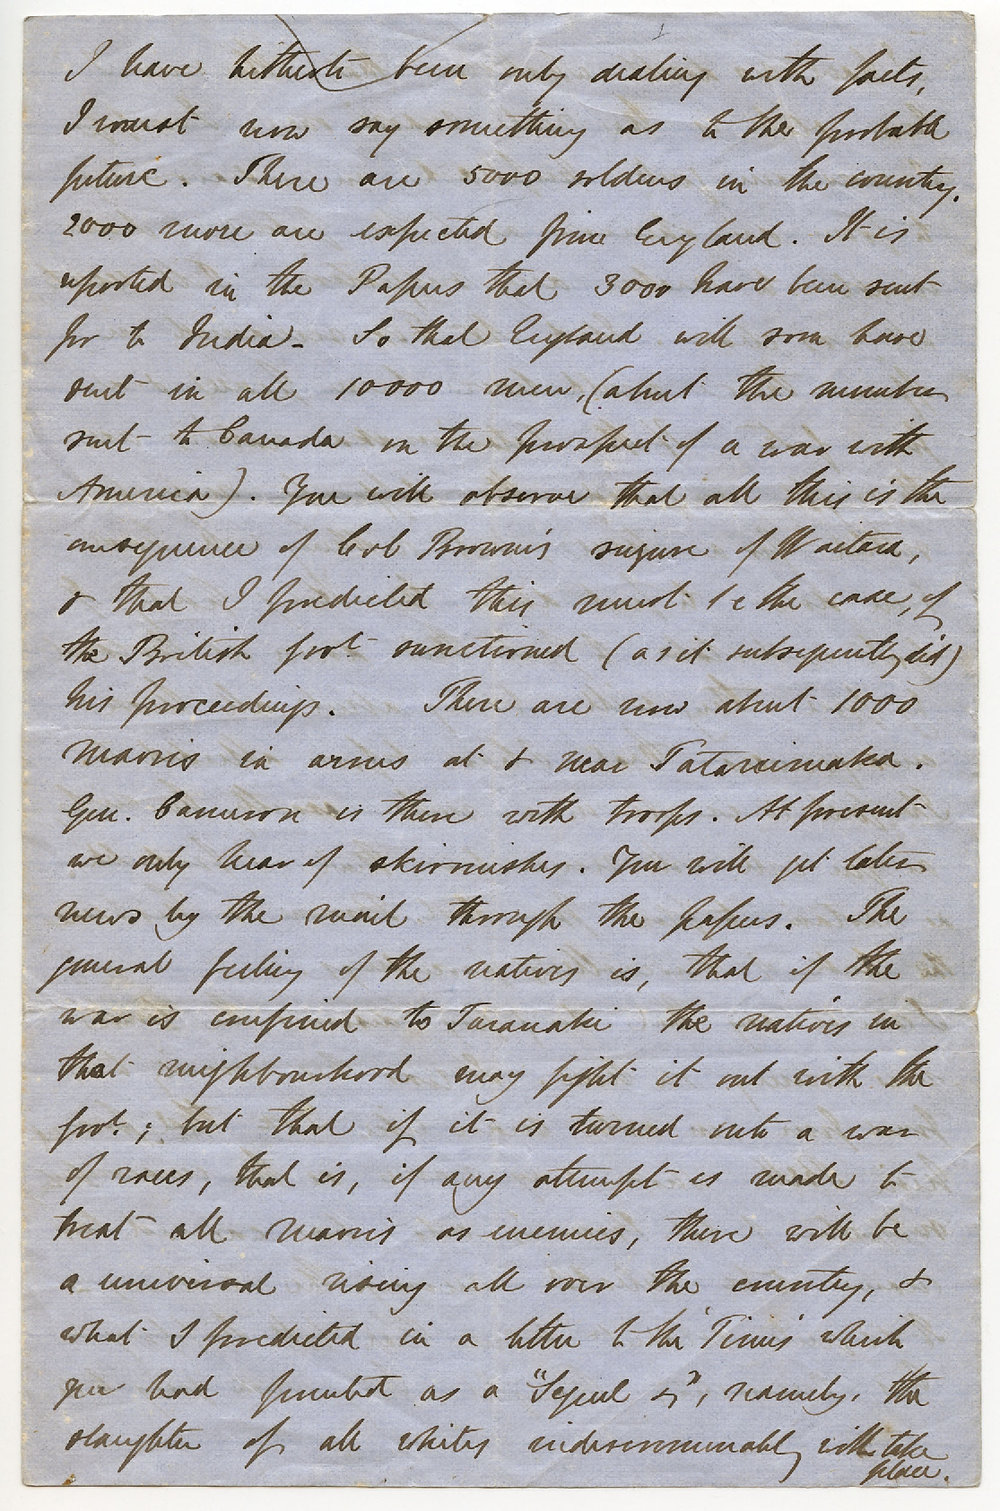 I have hitherto been only dealing with facts,
I must now say something as to the probable
future. There are 5000 soldiers in the country.
2000 more are expected from England. It is
reported in the Papers that 3000 have been sent
for to India. So that England will soon have
sent in all 10000 men, (about the number
sent to Canada on the prospect of a war with
America). You will observe that all this is the
consequence of Col Browne's seizure of Waitara,
& that I predicted this must be the case, if
the British Govt. sanctioned (as it subsequently did)
his proceedings. There are now about 1000
Maoris in arms at & near Tataraimaka.
Gen. Cameron is there with troops. At present
we only hear of skirmishes. You will get later
news by the mail through the papers. The
general feeling of the natives is, that if the
war is confined to Taranaki the natives in
that neighbourhood may fight it out with the
Govt.; but that if it is turned into a war
of races, that is, if any attempt is made to
treat all Maoris as enemies, there will be
a universal rising all over the country, &
what I predicted in a letter to the 'Times' which
you had printed as a "Sequel &", namely, the
slaughter of all whites indiscriminately will take
place.